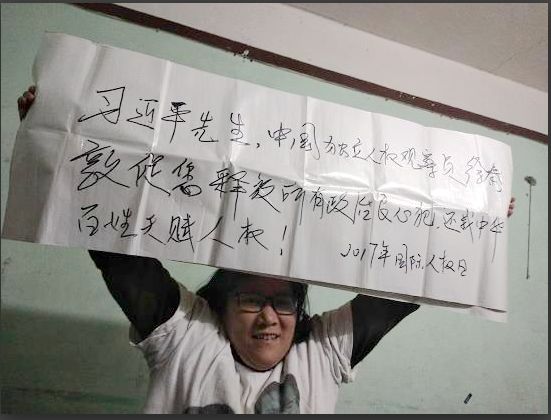 习近平先生,中国独立人权观察员徐秦
敦促您释放所有政治良心犯,还我中华
百姓天赋人权!
2017年国际人权日